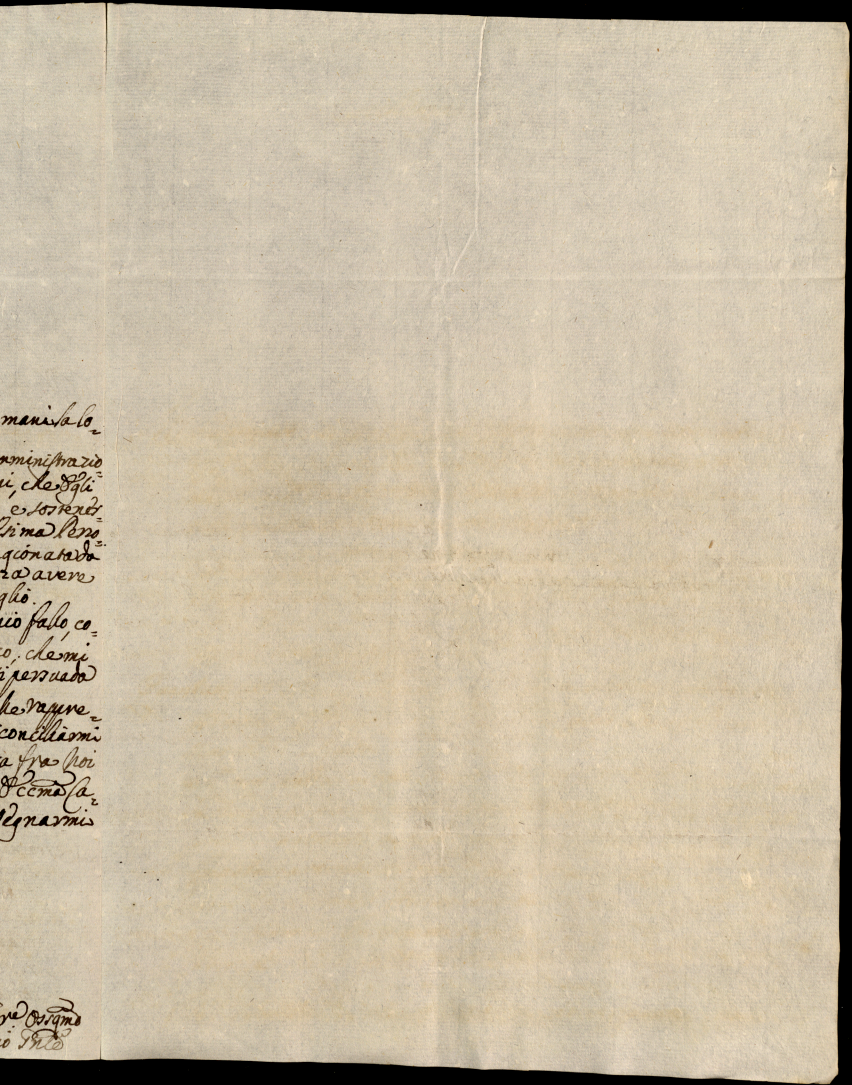 mani la lo=
mministrazio=
ni, che Egli
e sostener=
ssima Perso=
gionata da
za avere
glio.
uio fallo, co=
co, che mi
si persuada
he rappre=
conciliarmi
a fra Noi
Eccma Ca=
segnarmi
re Ossqmo